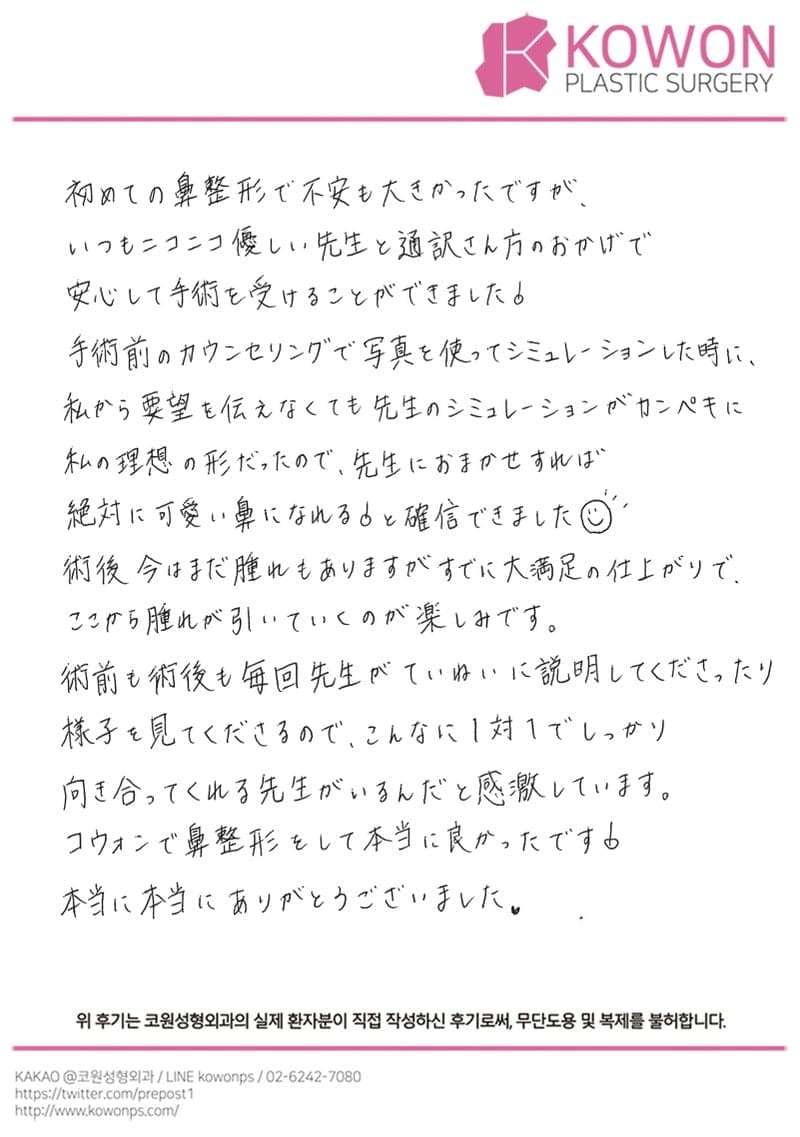 KOWON
PLASTIC SURGERY
初めての鼻整形で不安も大きかったですが、
いつもニコニコ優しい先生と通訳さん方のおかげで
安心して手術を受けることができました♪
手術前のカウンセリングで写真を使ってシミュレーションした時に、
私から要望を伝えなくても先生のシミュレーションがカンペキに
私の理想の形だったので、先生におまかせすれば
絶対に可愛い鼻になれる♪と確信できました
術後今はまだ腫れもありますがすでに大満足の仕上がりで、
ここから腫れが引いていくのが楽しみです。
術前も術後も毎回先生がていねいに説明してくださったり
様子を見てくださるので、こんなに1対1でしっかり
向き合ってくれる先生がいるんだと感激しています。
コウォンで鼻整形をして本当に良かったです♪
本当に本当にありがとうございました♥
위 후기는 코원성형외과의 실제 환자분이 직접 작성하신 후기로써, 무단도용 및 복제를 불허합니다.
KAKAO @코원성형외과 / LINE kowonps / 02-6242-7080
https://twitter.com/prepost1
http://www.kowonps.com/